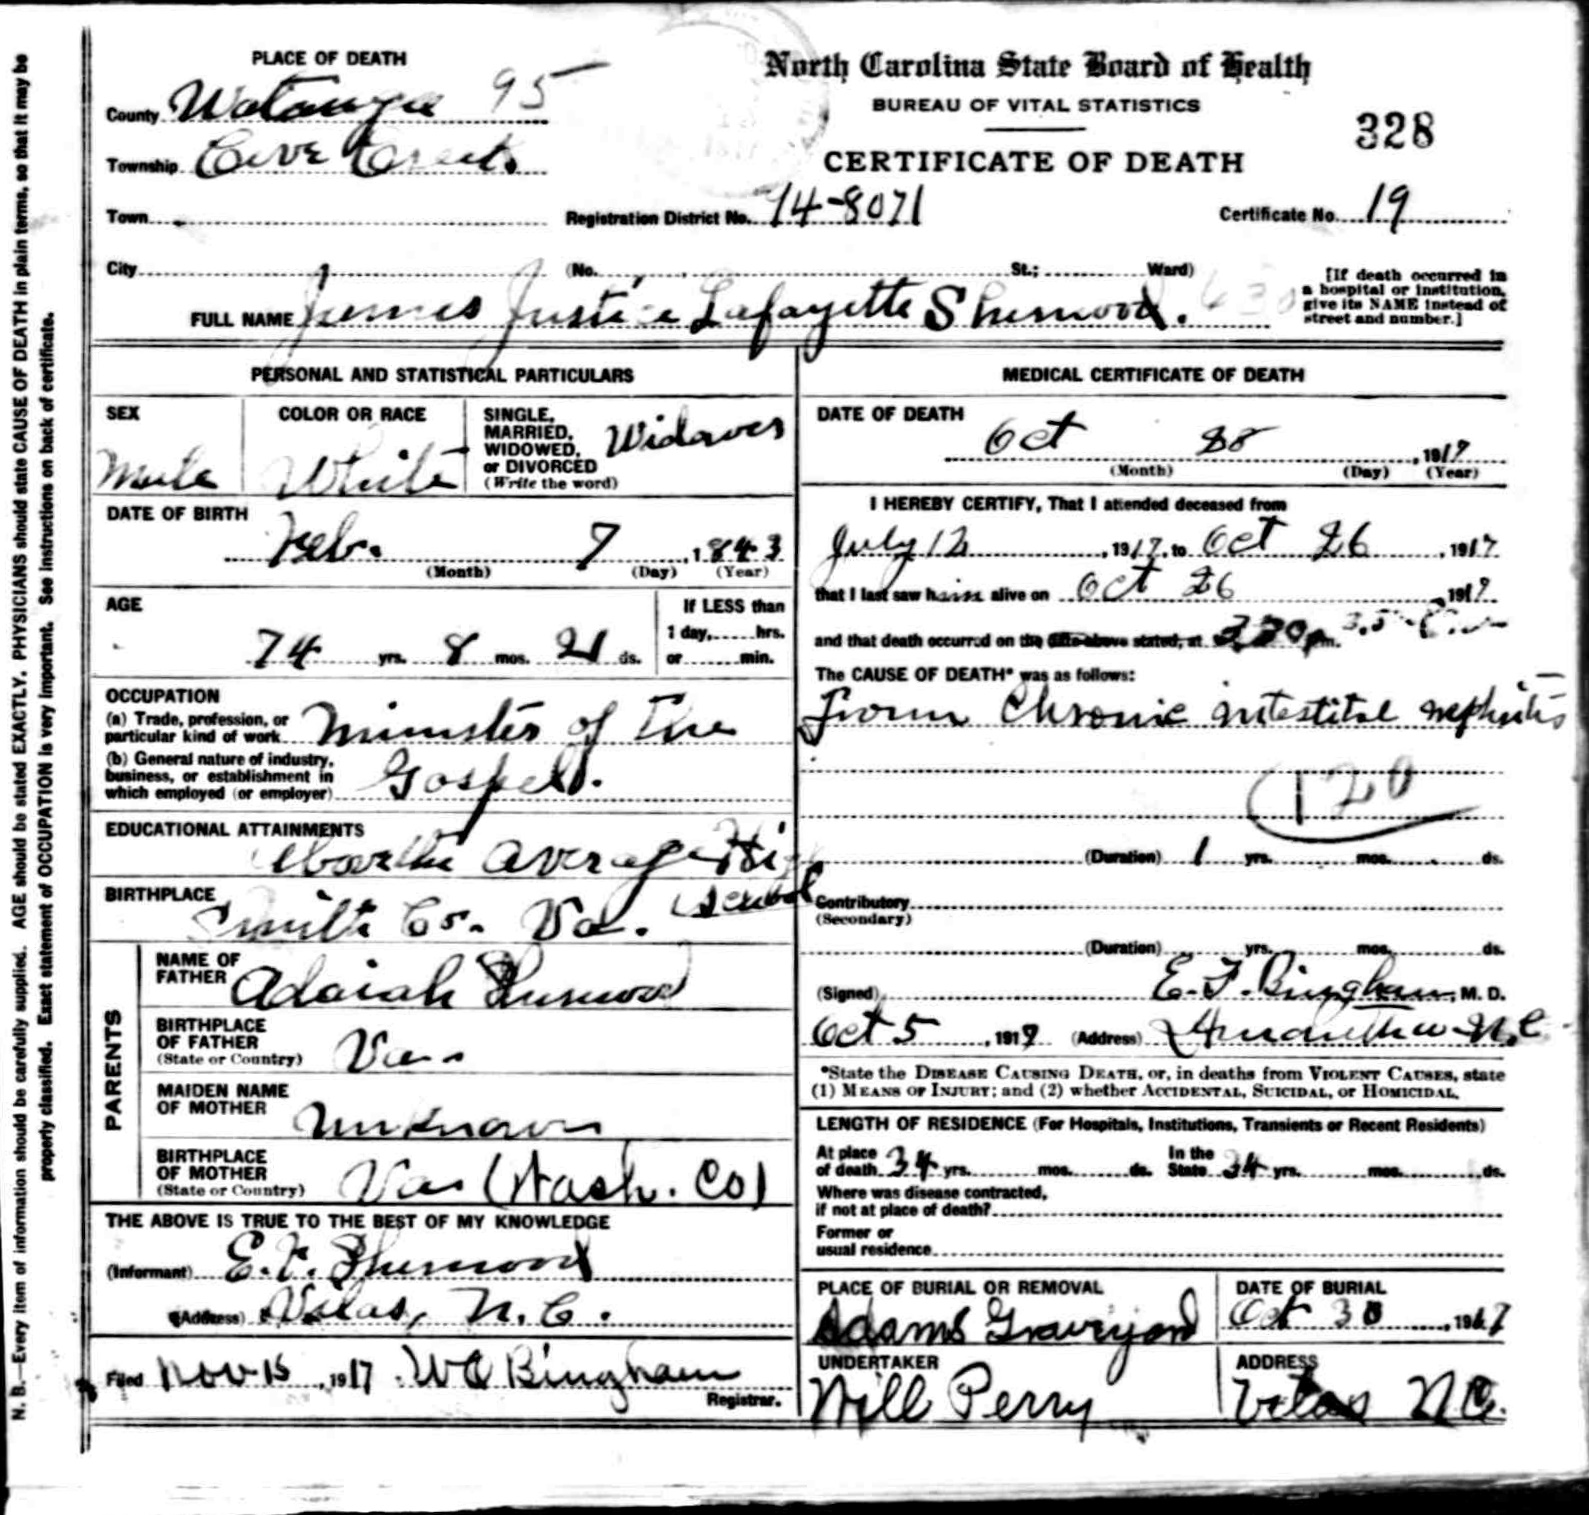 PLACE OF DEATH
County Watauga 95
Township Cove Creek
Town
City (No. St.; Ward)
North Carolina State Board of Health
BUREAU OF VITAL STATISTICS
CERTIFICATE OF DEATH
328
Registration District No. 14-8071
Certificate No. 19
[If death occurred in
a hospital or institution,
give its NAME instead of
street and number.]
FULL NAME James Justice Lafayette Sherwood.
PERSONAL AND STATISTICAL PARTICULARS
SEX
Male
COLOR OR RACE
White
SINGLE,
MARRIED,
WIDOWED,
or DIVORCED
(Write the word)
Widower
DATE OF BIRTH
Feb. 7, 1843
(Month) (Day) (Year)
AGE
74 yrs. 8 mos. 21 ds.
If LESS than
1 day,......hrs.
or........min.
OCCUPATION
(a) Trade, profession, or
particular kind of work Minister of The
(b) General nature of industry,
business, or establishment in
which employed (or employer) Gospel.
EDUCATIONAL ATTAINMENTS
average High
School
BIRTHPLACE
Smith Co. Va.
PARENTS
NAME OF
FATHER Adaiah Sherwood
BIRTHPLACE
OF FATHER
(State or Country) Va.
MAIDEN NAME
OF MOTHER Unknown
BIRTHPLACE
OF MOTHER
(State or Country) Va (Wash. Co)
THE ABOVE IS TRUE TO THE BEST OF MY KNOWLEDGE
(Informant) E. F. Sherwood
(Address) Vilas, N.C.
Filed Nov 15, 1917. W C Bingham
Registrar.
MEDICAL CERTIFICATE OF DEATH
DATE OF DEATH
Oct 28, 1917
(Month) (Day) (Year)
I HEREBY CERTIFY, That I attended deceased from
July 12, 1917, to Oct 26, 1917
that I last saw him alive on Oct 26 1917
and that death occurred on the date above stated, at 330 pm.
The CAUSE OF DEATH* was as follows:
From Chronic intestital nephritis
120
(Duration) 1 yrs. mos. ds.
Contributory
(Secondary)
(Duration) yrs. mos. ds.
(Signed) E. F. Bingham, M. D.
Oct 5, 1917 (Address) Amantha N.C.
*State the DISEASE CAUSING DEATH, or, in deaths from VIOLENT CAUSES, state
(1) MEANS OF INJURY; and (2) whether ACCIDENTAL, SUICIDAL, or HOMICIDAL.
LENGTH OF RESIDENCE (For Hospitals, Institutions, Transients or Recent Residents)
At place
of death 34 yrs. mos. ds.
In the
State 34 yrs. mos. ds.
Where was disease contracted,
if not at place of death?
Former or
usual residence
PLACE OF BURIAL OR REMOVAL
Adams Graveyard
DATE OF BURIAL
Oct 30, 1917
UNDERTAKER
Will Perry
ADDRESS
Vilas NC.
N. B.—Every item of information should be carefully supplied. AGE should be stated EXACTLY. PHYSICIANS should state CAUSE OF DEATH in plain terms, so that it may be
properly classified. Exact statement of OCCUPATION is very important. See instructions on back of certificate.